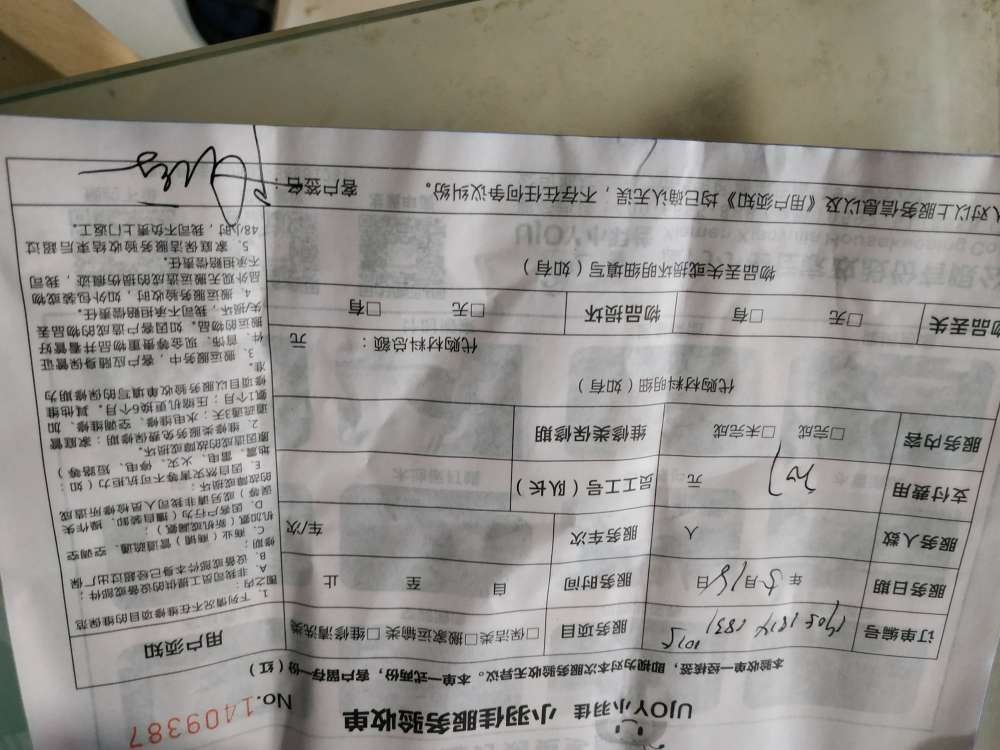 UJOY小羽佳 小羽佳服务验收单
No.1409387
本验收单一经签核，即视为对本次服务验收无异议。本单一式两份，客户留存一份（红）
订单编号
服务项目 □保洁类 □搬家运输类 □维修清洗类
服务日期 年 5月16日 服务时间 自 至 止
服务人数 人 服务车次 车/次
支付费用 元 员工工号（队长）
服务内容 □完成 □未完成 维修类保修期
代购材料明细（如有）
代购材料总额： 元
物品丢失 □无 □有 物品损坏 □无 □有
物品丢失或损坏明细填写（如有）
认对以上服务信息以及《用户须知》均已确认无误，不存在任何争议纠纷。 客户签名：
用户须知
1. 下列情况不在维修项目的维保范
围之内：
A. 非我司员工提供的设备或部件；
B. 设备或部件本身已经超过出厂保
修期；
C. 商业（商铺）管道疏通、空调空
机加氟（新机或漏氟）；
D. 因客户行为（擅自装卸、操作失
误等）或另请非我司人员检修所造成
的故障或损坏；
E. 因自然灾害等不可抗拒力（如：
地震、雷电、火灾、停电、短路等）
原因造成的故障或损坏。
2. 维修类服务免费保修期：家庭管
道疏通3天；水电维修、空调维修、加
氟1个月；压缩机更换6个月。其他维
修项目以服务验收单填写的保修期为
准。
3. 搬运服务中，客户应随身保管证
件、首饰、现金等贵重物品并看管好
搬运的物品。如因客户造成的物品丢
失/损坏，我司不承担赔偿责任。
4. 搬运服务验收时，如外包装或物
品外观无搬运造成的损伤痕迹，我司
不承担赔偿责任。
5. 家庭保洁服务验收结束后超过
48小时，我司不负责上门返工。